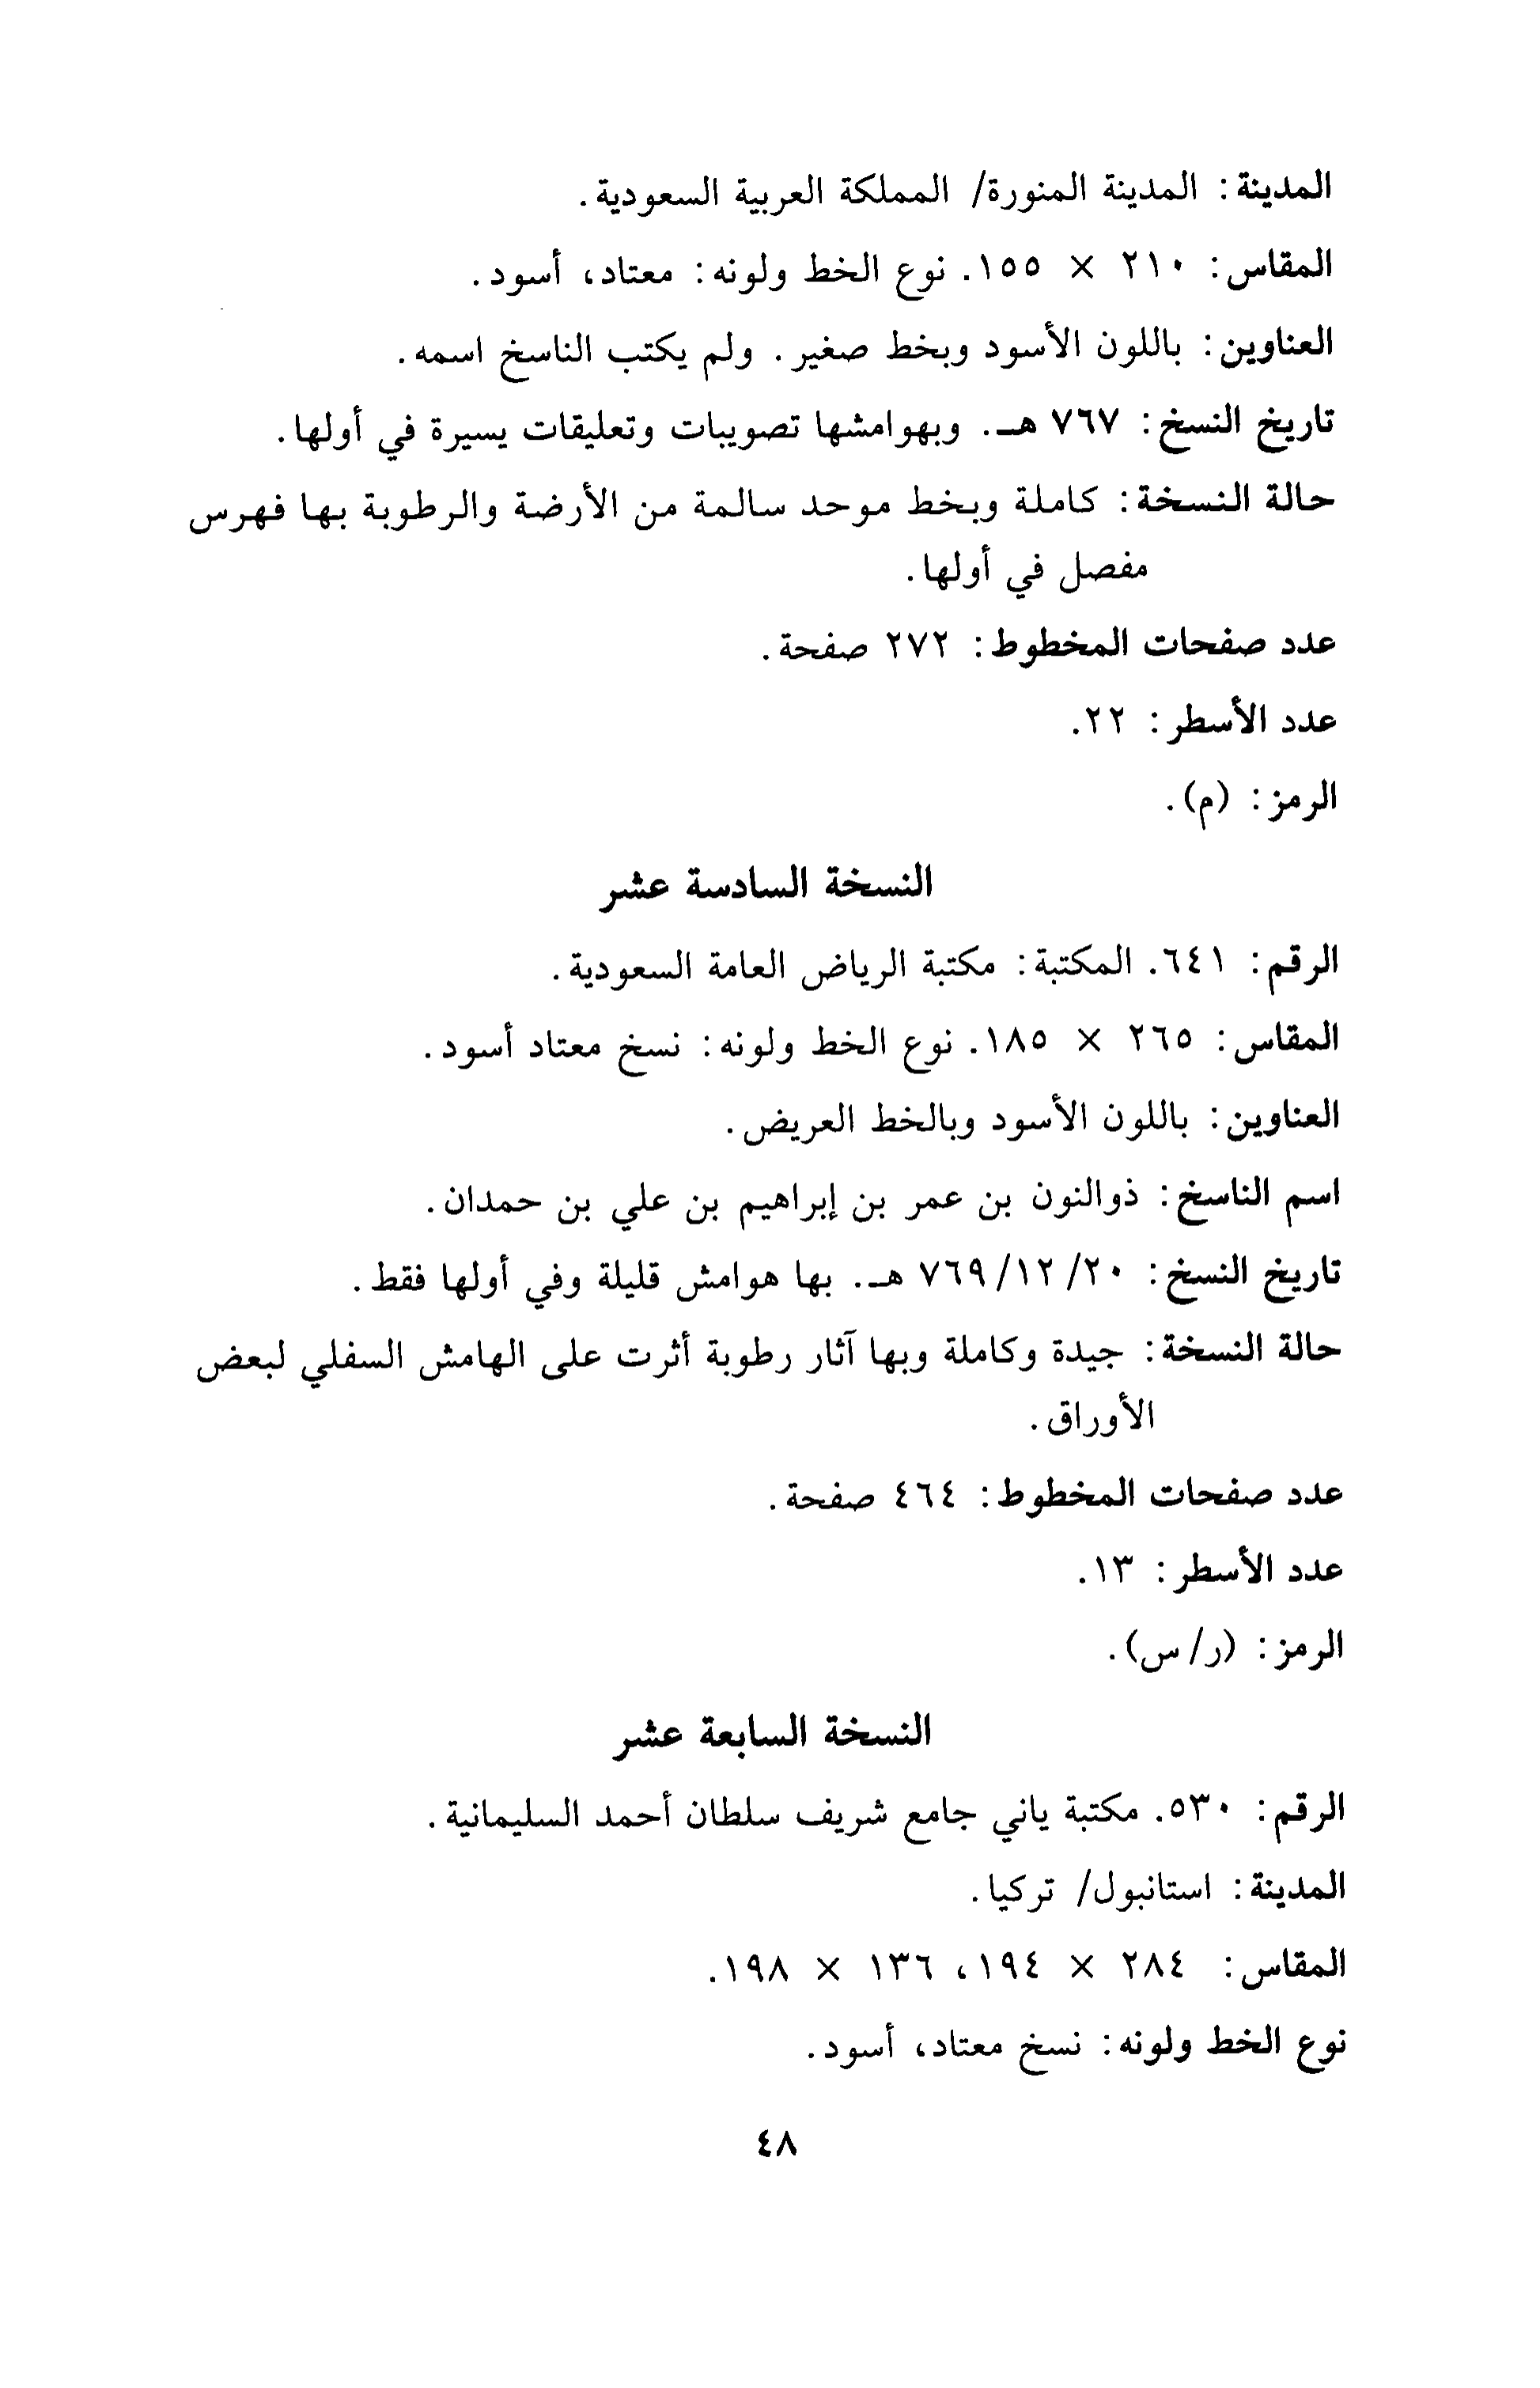 المدينة: المدينة المنورة/ المملكة العربية السعودية.
المقاس: ٢١٠ × ١٥٥. نوع الخط ولونه: معتاد، أسود.
العناوين: باللون الأسود وبخط صغير. ولم يكتب الناسخ اسمه.
تاريخ النسخ: ٧٦٧ هـ. وبهوامشها تصويبات وتعليقات يسيرة في أولها.
حالة النسخة: كاملة وبخط موحد سالمة من الأرضة والرطوبة بها فهرس
مفصل في أولها.
عدد صفحات المخطوط: ٢٧٢ صفحة.
عدد الأسطر: ٢٢.
الرمز: (م).
النسخة السادسة عشر
الرقم: ٦٤١. المكتبة: مكتبة الرياض العامة السعودية.
المقاس: ٢٦٥ × ١٨٥. نوع الخط ولونه: نسخ معتاد أسود.
العناوين: باللون الأسود وبالخط العريض.
اسم الناسخ: ذوالنون بن عمر بن إبراهيم بن علي بن حمدان.
تاريخ النسخ: ٢٠/ ١٢/ ٧٦٩ هـ. بها هوامش قليلة وفي أولها فقط.
حالة النسخة: جيدة وكاملة وبها آثار رطوبة أثرت على الهامش السفلي لبعض
الأوراق.
عدد صفحات المخطوط: ٤٦٤ صفحة.
عدد الأسطر: ١٣.
الرمز: (ر/ س).
النسخة السابعة عشر
الرقم: ٥٣٠. مكتبة ياني جامع شريف سلطان أحمد السليمانية.
المدينة: استانبول/ تركيا.
المقاس: ٢٨٤ × ١٩٤، ١٣٦ × ١٩٨.
نوع الخط ولونه: نسخ معتاد، أسود.
٤٨